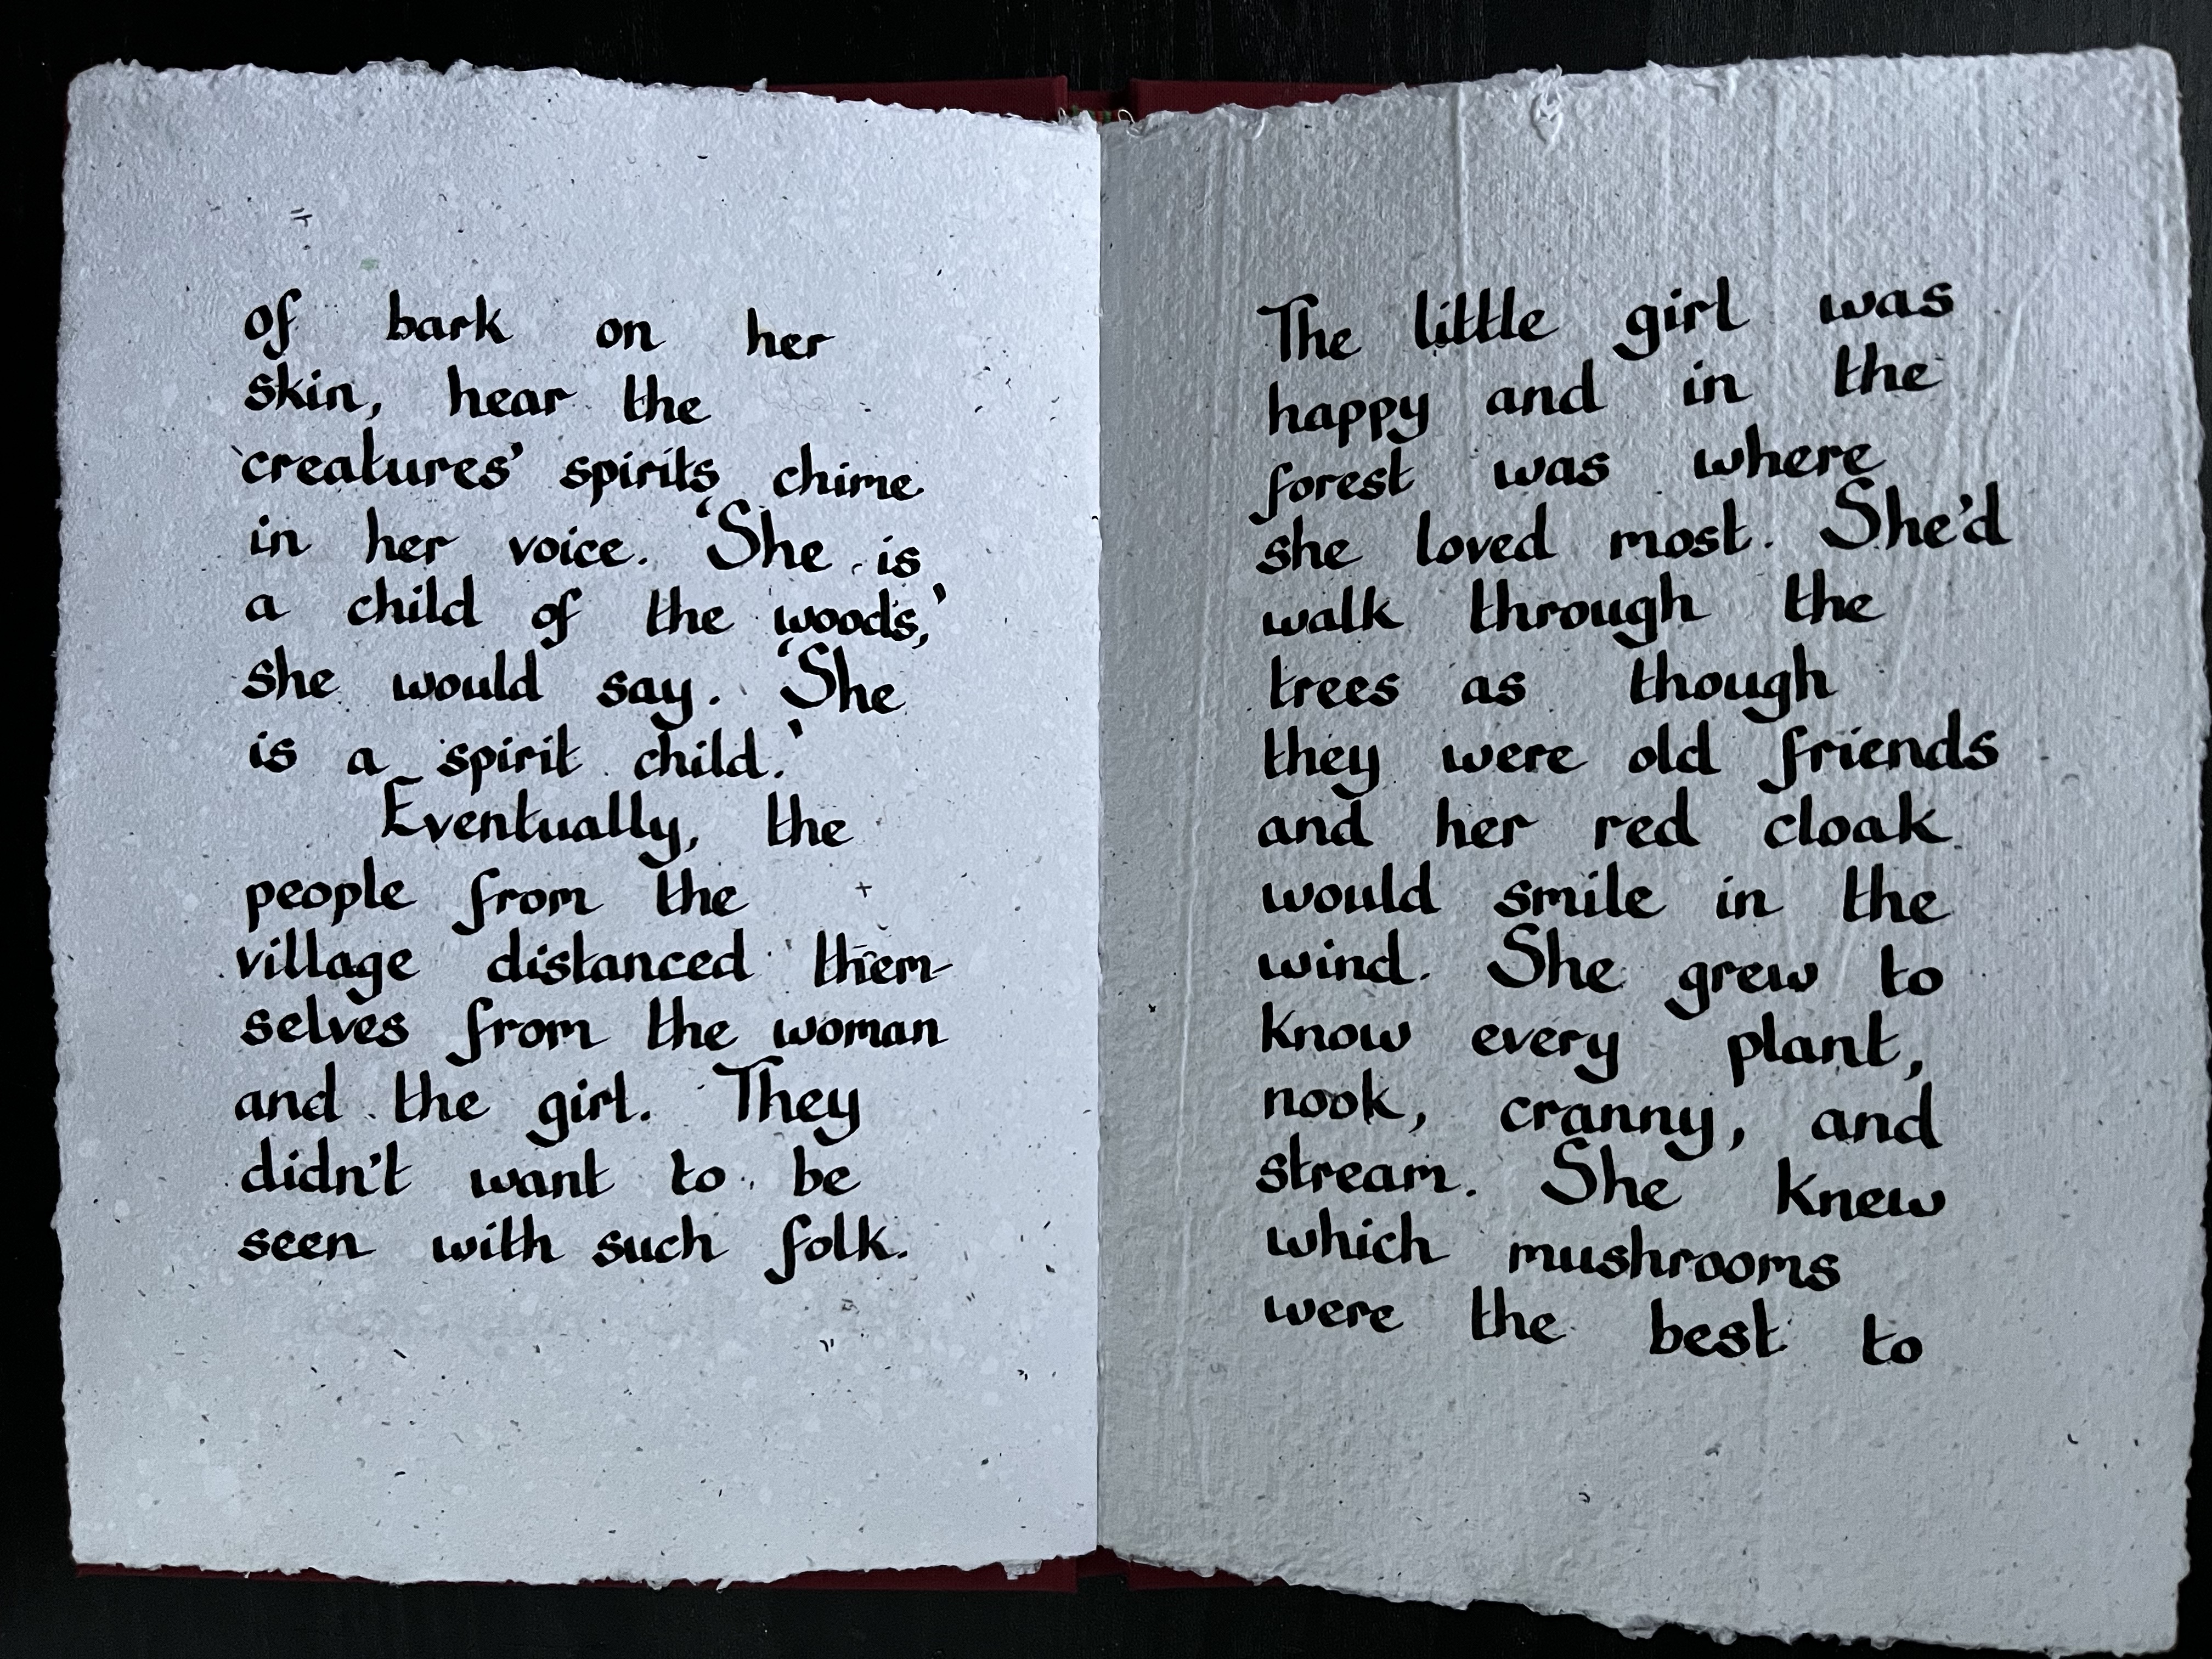 of bark on her
skin, hear the
creatures' spirits chime
in her voice. 'She is
a child of the woods,'
she would say. 'She
is a spirit child.'
Eventually, the
people from the
village distanced them-
selves from the woman
and the girl. They
didn't want to be
seen with such folk.
The little girl was
happy and in the
forest was where
she loved most. She'd
walk through the
trees as though
they were old friends
and her red cloak
would smile in the
wind. She grew to
know every plant,
nook, cranny, and
stream. She knew
which mushrooms
were the best to